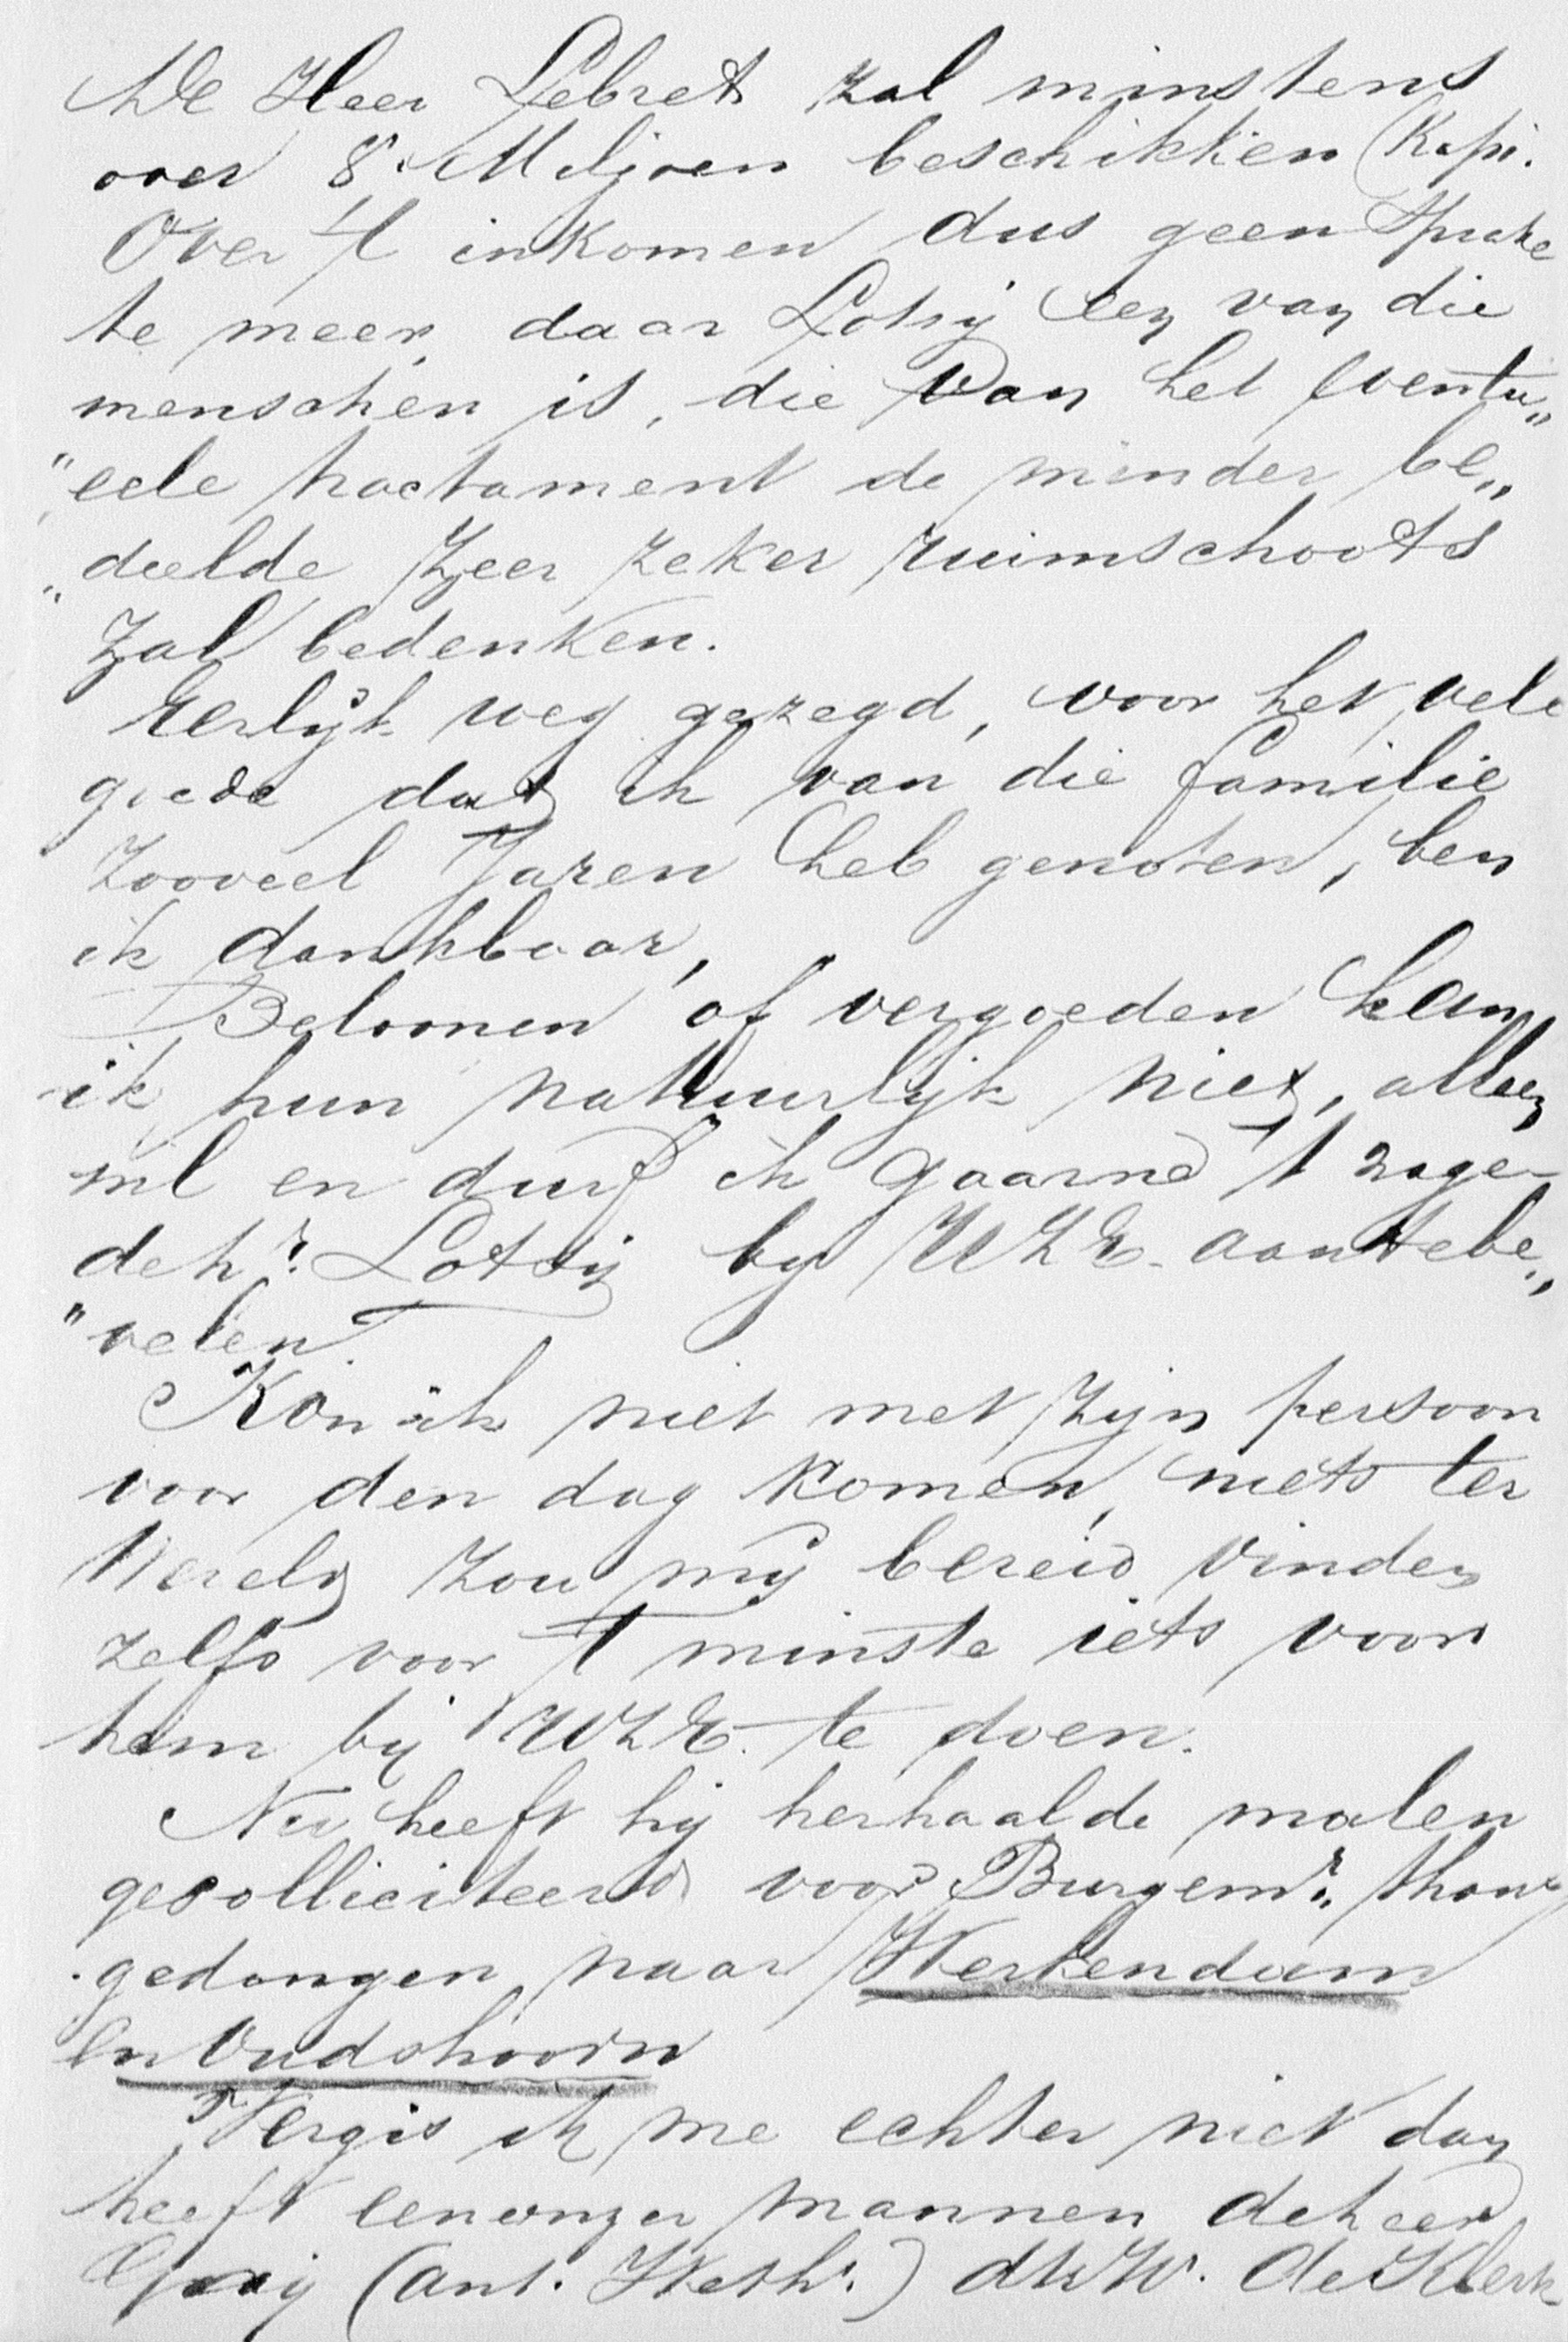 De Heer Lebret zal minstens
over 8 Miljoen beschikken (Kapi.
Over 't inkomen dus geen sprake
te meer, daar Lotsij een van die
menschen is, die van het eventu„
"eele tractament de minder be„
„deelde zeer zeker ruimschoots
zal bedenken.
Eerlijk weg gezegd, voor het vele
goede dat ik van die familie
zooveel Jaren heb genoten, ben
ik dankbaar,
Beloonen of vergoeden kan
ik hun natuurlijk niet, alleen
wil en durf ik gaarne 't zoge-
deh.r Lotsij by UZE. aantebe„
"velen.
Kon ik niet met zijn persoon
voor den dag komen, niets ter
Wereld zou mij bereid vinden
zelfs voor 't minste iets voor
hem bij UZE. te doen.
Nu heeft hij herhaalde malen
gesolliciteerd voor Burgemr. thans
gedongen naar Werkendam
en Oudshoorn
Vergis ik me echter niet dan
heeft een onzer mannen deheer
(ant. Weth.r) de Klerk